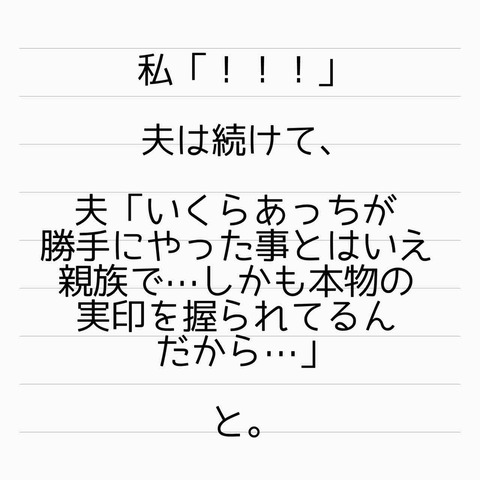 私「！！！」
夫は続けて、
夫「いくらあっちが
勝手にやった事とはいえ
親族で…しかも本物の
実印を握られてるん
だから…」
と。